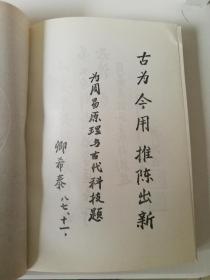 古为今用 推陈出新
为周易原理与古代科技题
卿希泰
八七、十一、